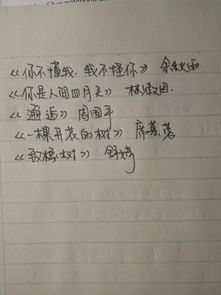 《你不懂我，我不怪你》 余秋雨
《你是人间四月天》 林徽因.
《邂逅》 周国平
《一棵开花的树》 席慕蓉
《致橡树》 舒婷